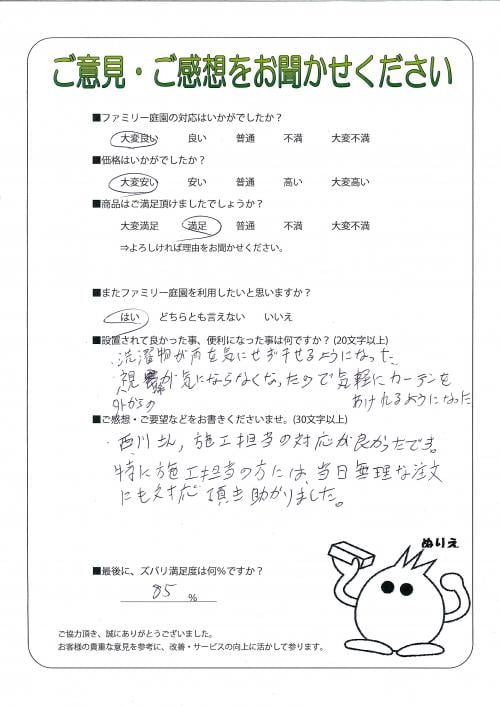 ご意見・ご感想をお聞かせください
■ファミリー庭園の対応はいかがでしたか？
大変良い 良い 普通 不満 大変不満
■価格はいかがでしたか？
大変安い 安い 普通 高い 大変高い
■商品はご満足頂けましたでしょうか？
大変満足 満足 普通 不満 大変不満
⇒よろしければ理由をお聞かせください。
■またファミリー庭園を利用したいと思いますか？
はい どちらとも言えない いいえ
■設置されて良かった事、便利になった事は何ですか？(20文字以上)
・洗濯物が雨を気にせず干せるようになった
・視線が気にならなくなったので気軽にカーテンを
外からの
あけれるようになった
■ご感想・ご要望などをお書きくださいませ。(30文字以上)
・西川さん，施工担当の対応が良かったです。
特に施工担当の方には、当日無理な注文
にも対応頂き助かりました。
■最後に、ズバリ満足度は何%ですか？
85 %
ぬりえ
ご協力頂き、誠にありがとうございました。
お客様の貴重な意見を参考に、改善・サービスの向上に活かして参ります。